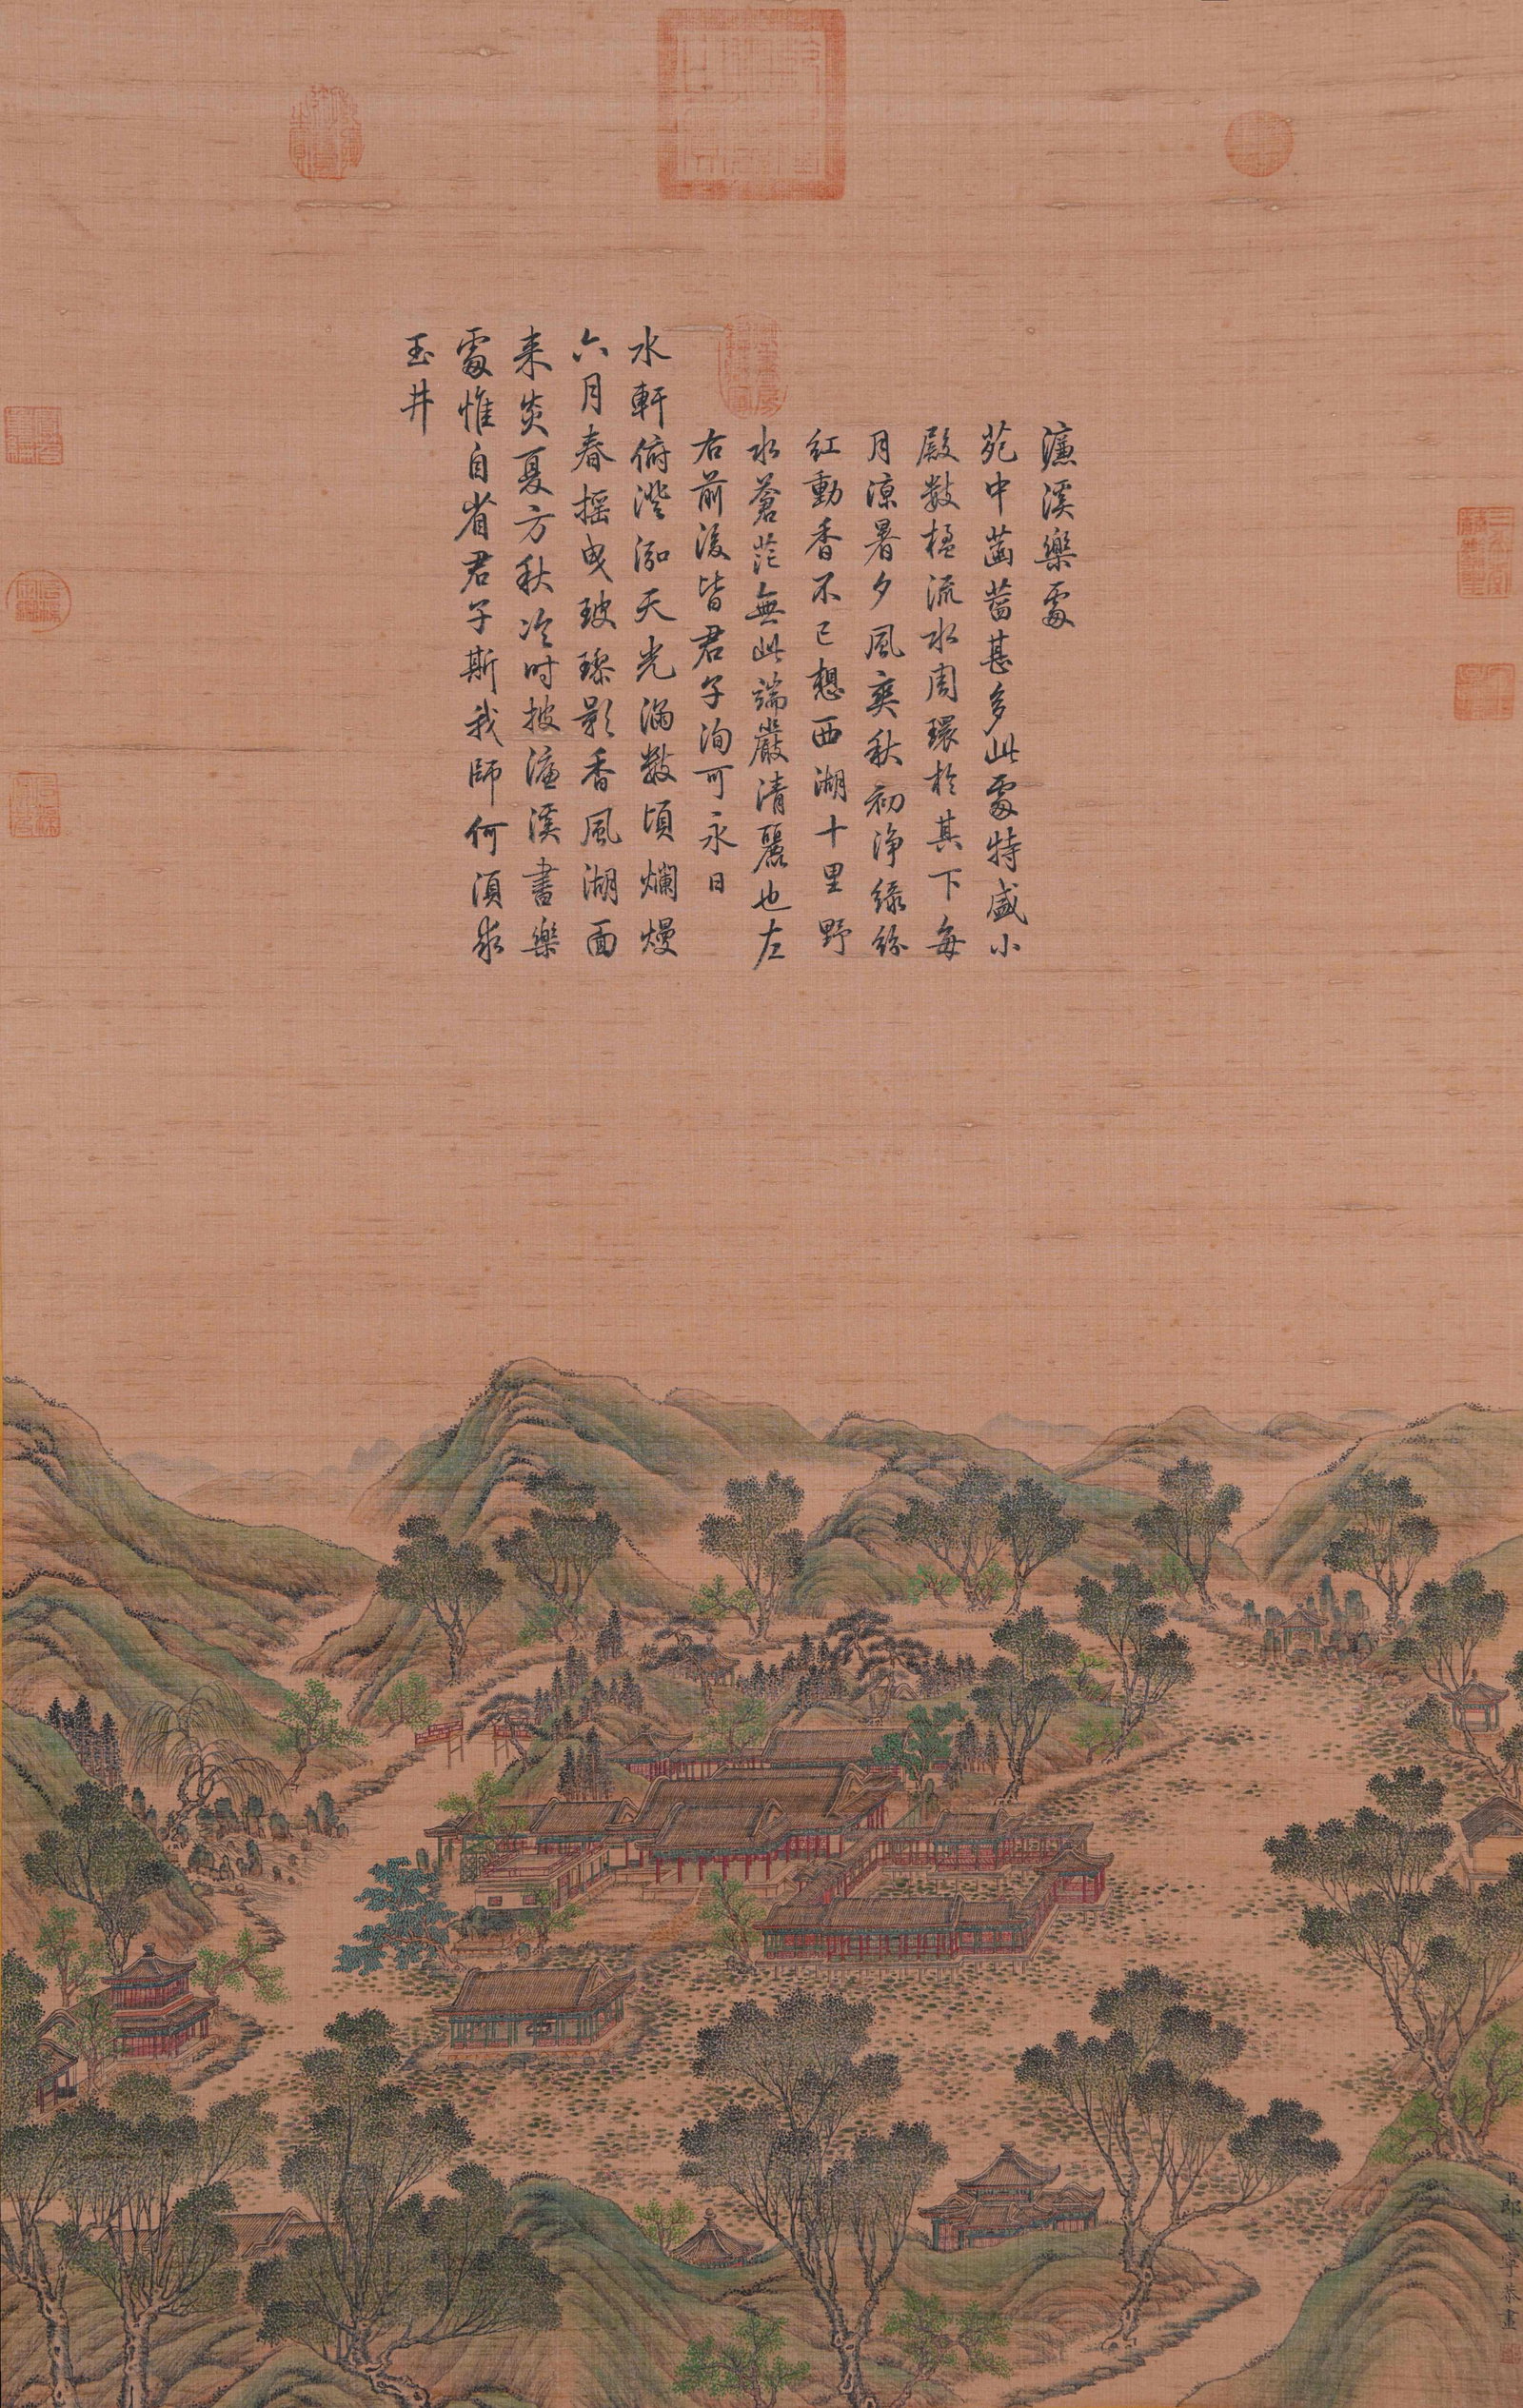 濂溪樂處
苑中菡萏甚多此處特盛小
殿數楹流水周環於其下每
月涼暑夕風爽秋初淨綠粉
紅動香不已想西湖十里野
水蒼茫無此端嚴清麗也左
右前後皆君子洵可永日
水軒俯澄泓天光涵數頃爛熳
六月春搖曳玻瓈影香風湖面
来炎夏方秋冷时披濂溪書樂
處惟自省君子斯我師何須求
玉井
臣郎世寧恭畫